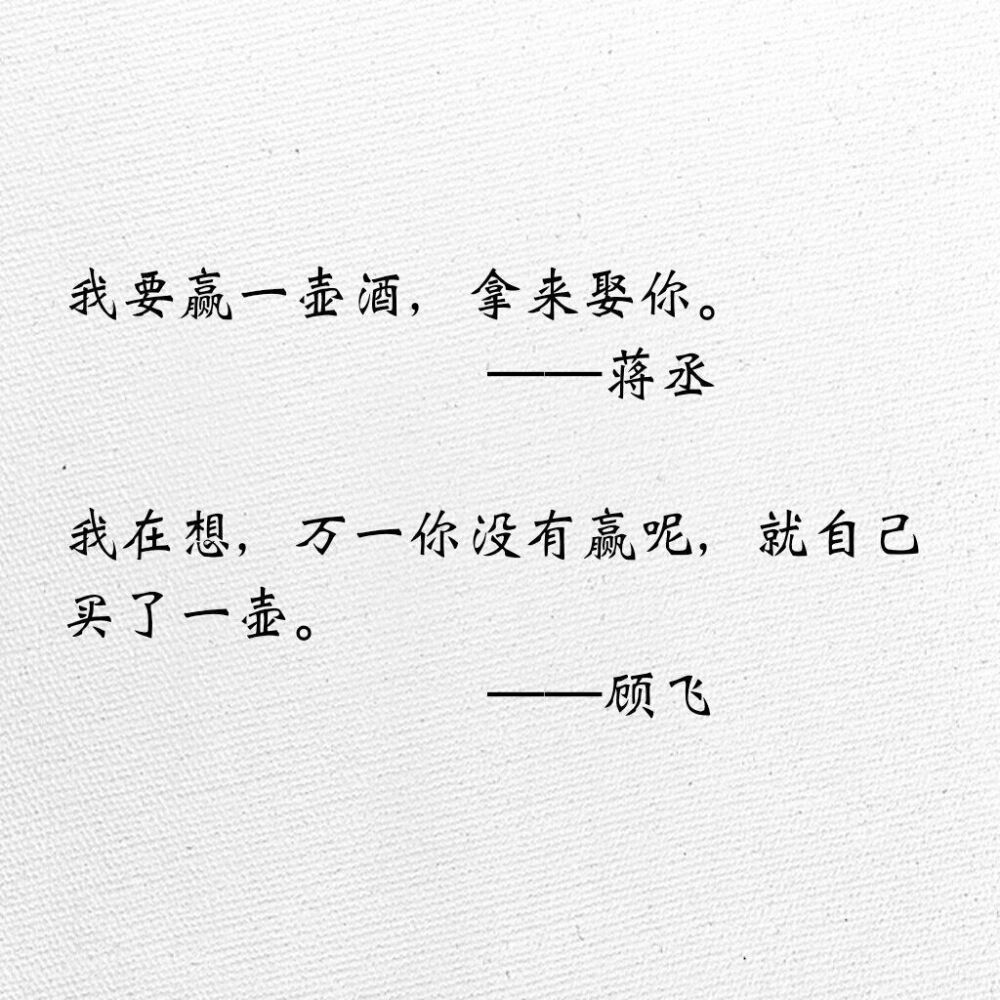 我要赢一壶酒，拿来娶你。
——蒋丞
我在想，万一你没有赢呢，就自己
买了一壶。
——顾飞